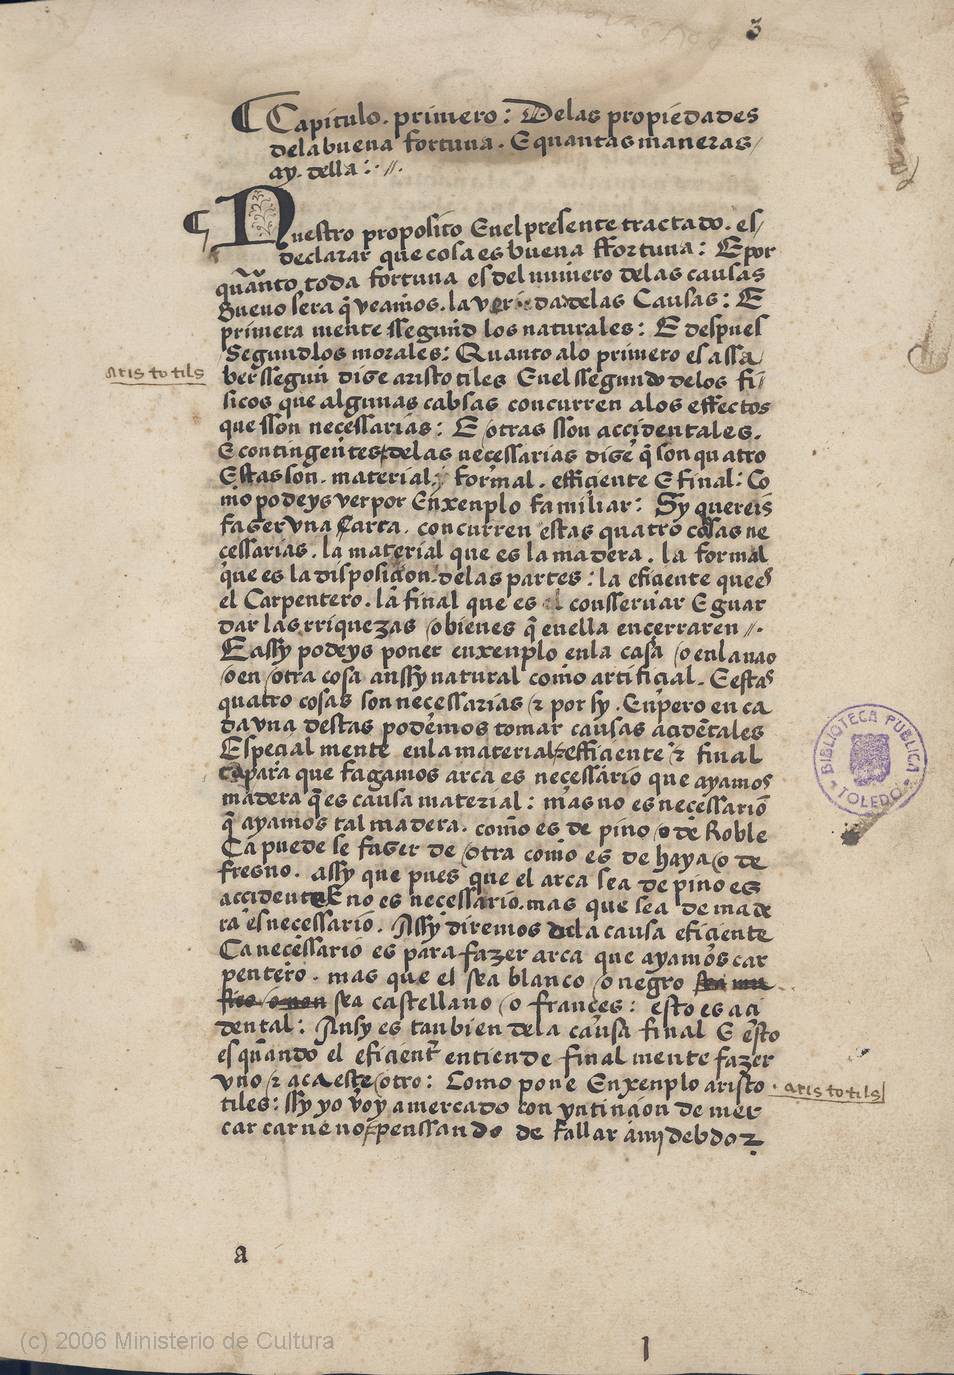 3
¶ Capitulo. primero: Delas propiedades
dela buena fortuna. E quantas maneras
ay. della:. //.
¶ Nuestro proposito Enel presente tractado. es
declarar que cosa es buena ffortuna: E por
quãnto toda fortuna es del numero delas causas
Bueno sera q̃ veamos. la verdad delas Causas: E
primera mente ssegund los naturales: E despues
Segund los morales: Quanto alo primero es assa
ber ssegun dise aristotiles Enel ssegundo delos fi
sicos que algunas cabsas concurren alos effectos
que sson neçessarias: E otras sson accidentales.
E contingentes delas neçessarias dise q̃ son quatro
Estas son. material. formal. efficiente E final: Co
mo podeys ver por Enxenplo familiar: Sy quereis
faser vna Carta. concurren estas quatro cosas ne
cessarias. la material que es la madera. la formal
que es la disposiçion. delas partes: la efiçiente que es
el Carpentero. la final que es el consseruar E guar
dar las rriquezas o bienes q̃ en ella ençerraren //.
E assy podeys poner enxenplo enla casa o enla nao
o en otra cosa anssy natural como artifiçial. E estas
quatro cosas son neçessarias & por sy. Enpero en ca
da vna destas podemos tomar causas acidẽtales
Espeçial mente enla material efficiente & final
Ca para que fagamos arca es neçessario que ayamos
madera q̃ es causa material: mas no es neçessario
q̃ ayamos tal madera. como es de pino o de Roble
Ca puede se faser de otra como es de haya o de
fresno. assy que pues que el arca sea de pino es
accidente E no es neçessario. mas que sea de made
ra es neçessario. Assy diremos dela causa efiçiente
Ca neçessario es para fazer arca que ayamos car
pentero. mas que el sea blanco o negro
sea castellano o françes: esto es açi
dental: Ansy es tanbien dela causa final E esto
es quando el efiçient̃ entiende final mente fazer
vno & acaesçe otro: Como pone Enxenplo aristo
tiles: ssy yo voy a mercado con yntinçion de mer
car carne no penssando de fallar a mj debdor
aristotils
aristotils
a
1
BIBLIOTECA PUBLICA
TOLEDO
(c) 2006 Ministerio de Cultura